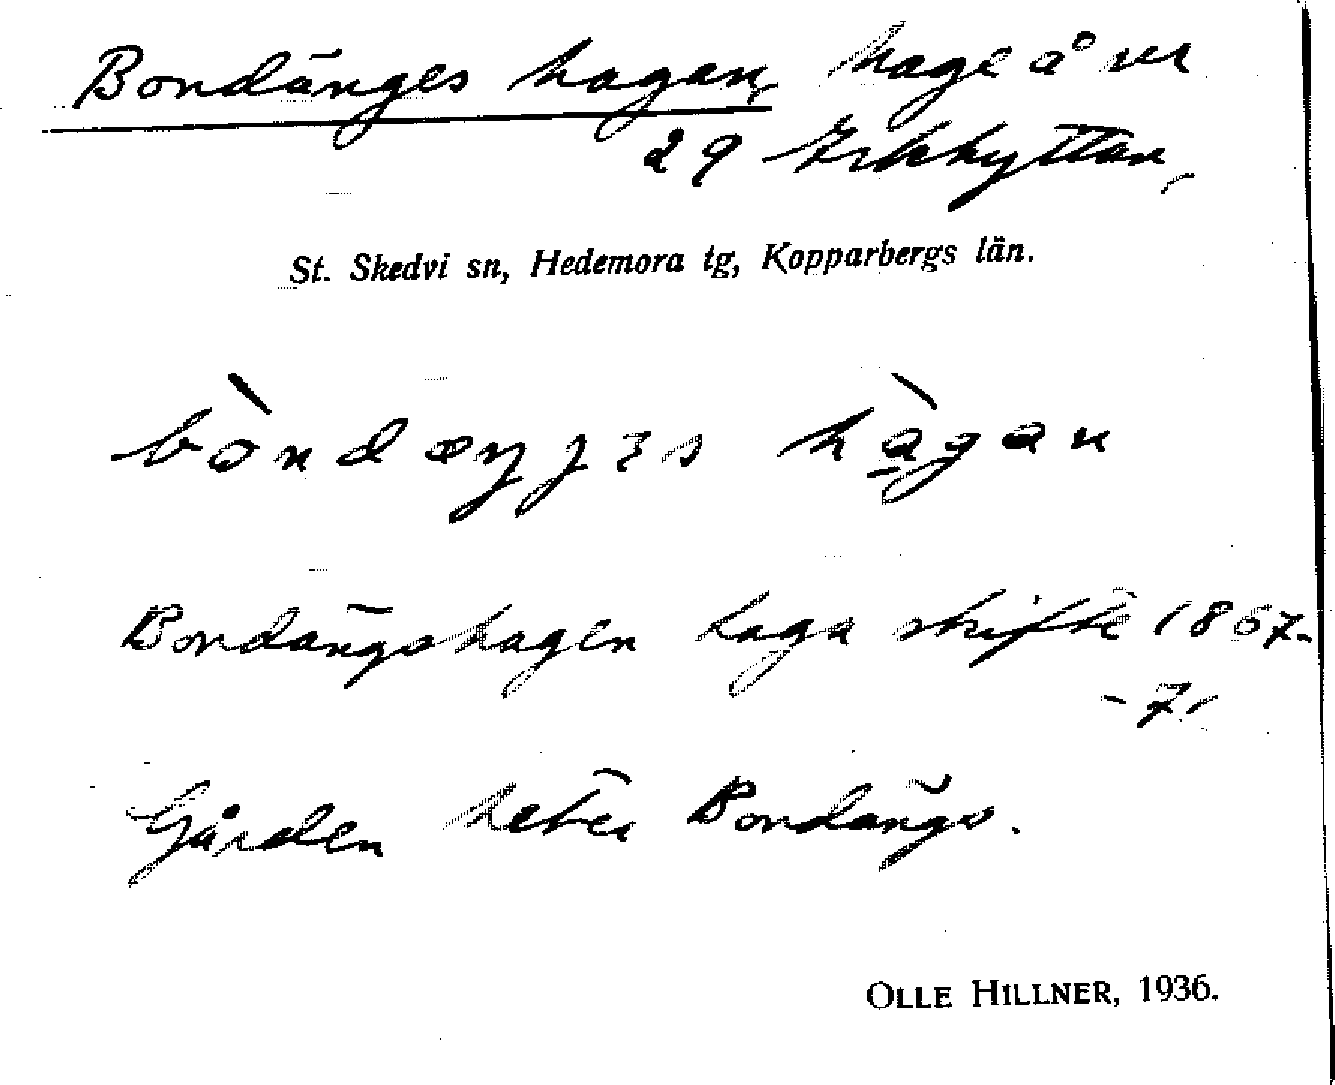 Bondänges hagan, hage å nr
29 Erkhyttan,
St. Skedvi sn, Hedemora tg, Kopparbergs län.
bòndæŋʒɜs hàgan
Bondängshagen laga skifte 1867-
-71
Gården heter Bondängs.
OLLE HILLNER, 1936.